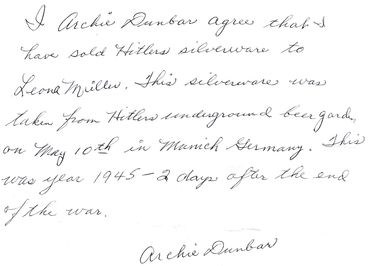 I Archie Dunbar agree that I
have sold Hitlers silverware to
Leona Miller. This silverware was
taken from Hitlers underground beer garden,
on May 10th in Munich Germany. This
was year 1945 - 2 days after the end
of the war.
Archie Dunbar